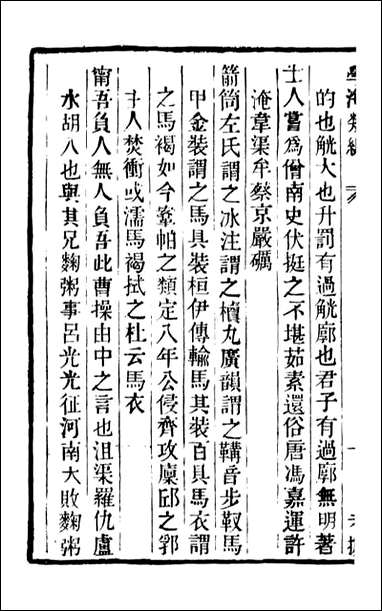 學海類編
的也觥大也升罰有過觥廓也君子有過廓無明著
士人嘗為僧南史伏挺之不堪茹素還俗唐馮嘉運許
淹韋渠牟蔡京嚴礪
箭筒左氏謂之冰注謂之櫝丸廣韻謂之鞲音步靫馬
甲金裝謂之馬具裝桓伊傳輸馬其裝百具馬衣謂
之馬褐如今氊帕之類定八年公侵齊攻廩邱之郛
主人焚衝或濡馬褐拭之杜云馬衣
甯吾負人無人負吾此曹操由中之言也沮渠羅仇盧
水胡人也與其兄麴粥事呂光光征河南大敗麴粥